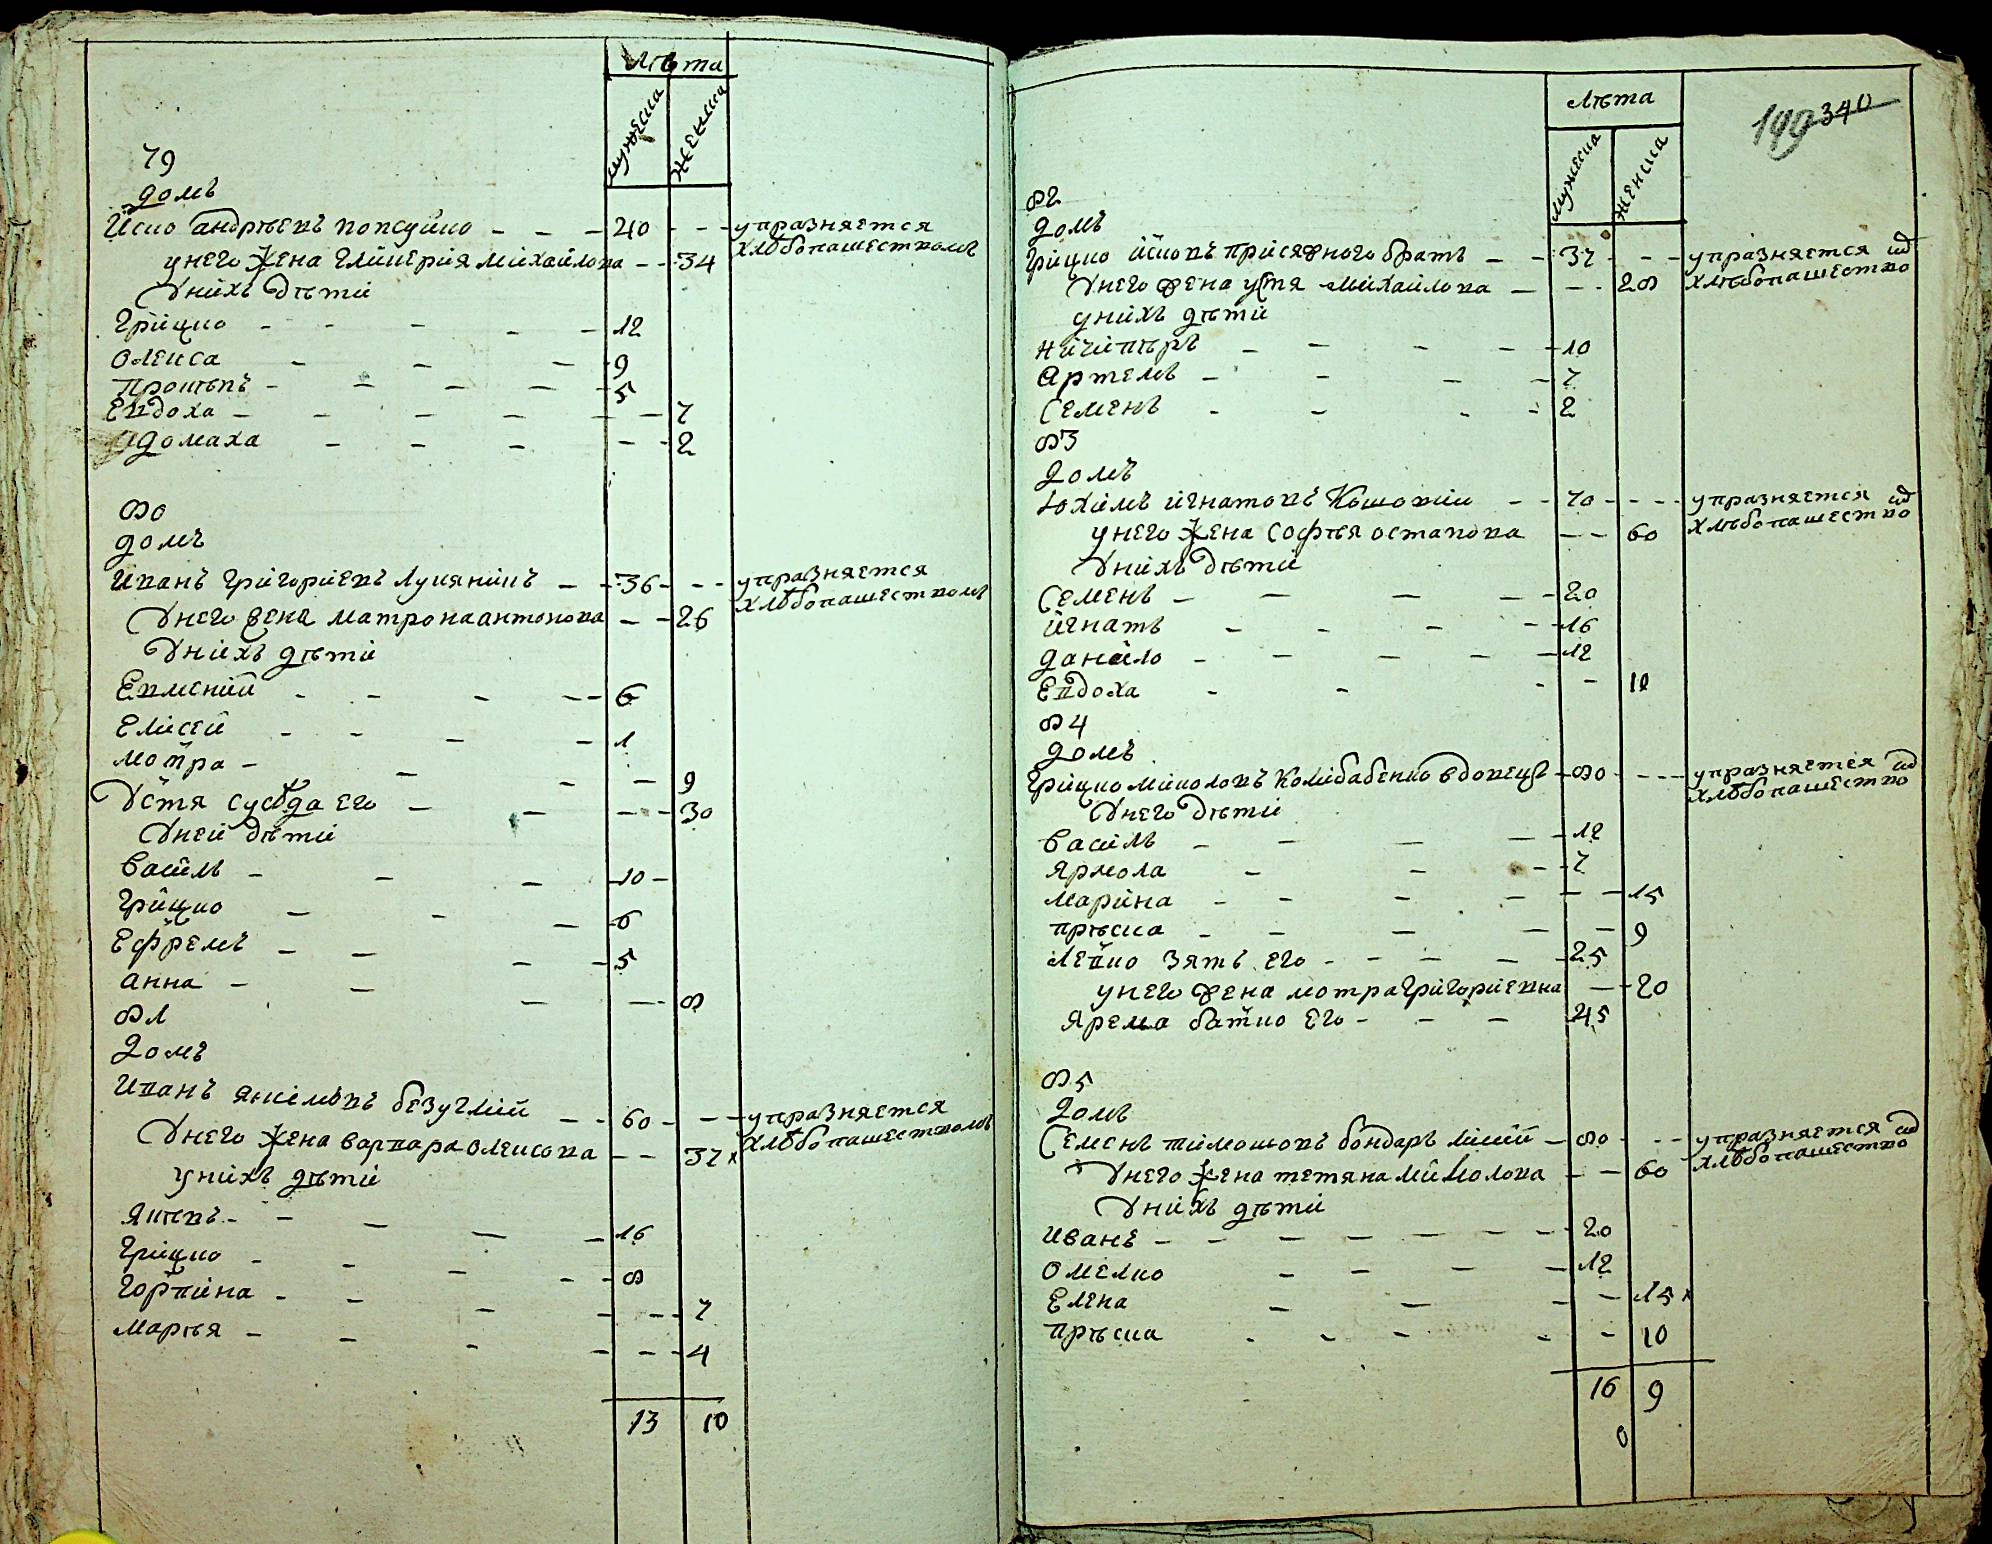 Лѣта
мужеска
женска
79
домъ
Иско андрѣевъ попсуйко - - - 40 - - - упразняется
унего жена гликерия михайлова - - 34 хлѣбопашествомъ
Унихъ дѣти
Грицко - - - - - 12
Олекса - - - 9
Прокопъ - - - - - 5
Евдоха - - - - - - 7
Домаха - - - - - 2
80
домъ
Иванъ григориевъ лукянинъ - - 36 - - - упразняется
Унего жена матрона антонова - - 26 хлѣбопашествомъ
Унихъ дѣти
Евмений - - - - - 6
Елисей - - - - 1
мотра - - - - 9
Устя сусѣда его - - - - 30
Уней дѣти
василь - - - 10 -
грицко - - - 6
Ефремъ - - - - 5
анна - - - - - 8
81
домъ
Иванъ якимовъ безуглий - - 60 - - - упразняется
Унего жена варвара олексова - - 37 х хлѣбопашествомъ
унихъ дѣти
Яковъ - - - - - 16
Грицко - - - - - 8
горпина - - - - - - 7
марья - - - - - - 4
13 10
199 340
Лѣта
мужеска
женска
82
домъ
Грицко исковъ присяжного братъ - - 37 - - упразняется
Унего жена устя михайлова - - - 28 хлѣбопашество
унихъ дѣти
ничипоръ - - - - - 10
Артемъ - - - - 7
Семенъ - - - - 2
83
домъ
Юхимъ игнатовъ Кошовий - - 70 - - - упразняется
унего жена софья остапова - - 60 хлѣбопашество
Унихъ дѣти
Семенъ - - - - - 20
игнатъ - - - - - 16
данило - - - - - 12
Евдоха - - - - 10
84
домъ
Грицко миколовъ Колибабенко вдовецъ - 80 - - - упразняется
Унего дѣти хлѣбопашество
василь - - - - - 12
Ярмола - - - - 7
марина - - - - - - 15
приска - - - - - 9
левко зять его - - - - - 25
унего жена мотра григориевна - - 20
Ярема батко его - - - 45
85
домъ
Семенъ тимошовъ бондарь лисий - 80 - - - упразняется
Унего жена тетяна миколова - - 60 хлѣбопашество
Унихъ дѣти
иванъ - - - - - - - 20
Омелко - - - - 12
Елена - - - - 15 х
приска - - - - - 10
16 9
0